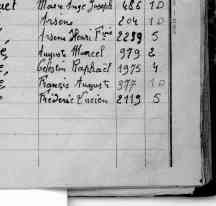 Marie Ange Joseph 486 1D
Arsène 204 1D
Arsène Henri Fçois 2289 5
Auguste Marcel 979 2
Célestin Raphaël 1975 4
François Auguste 377 1D
Frédéric Lucien 2119 5